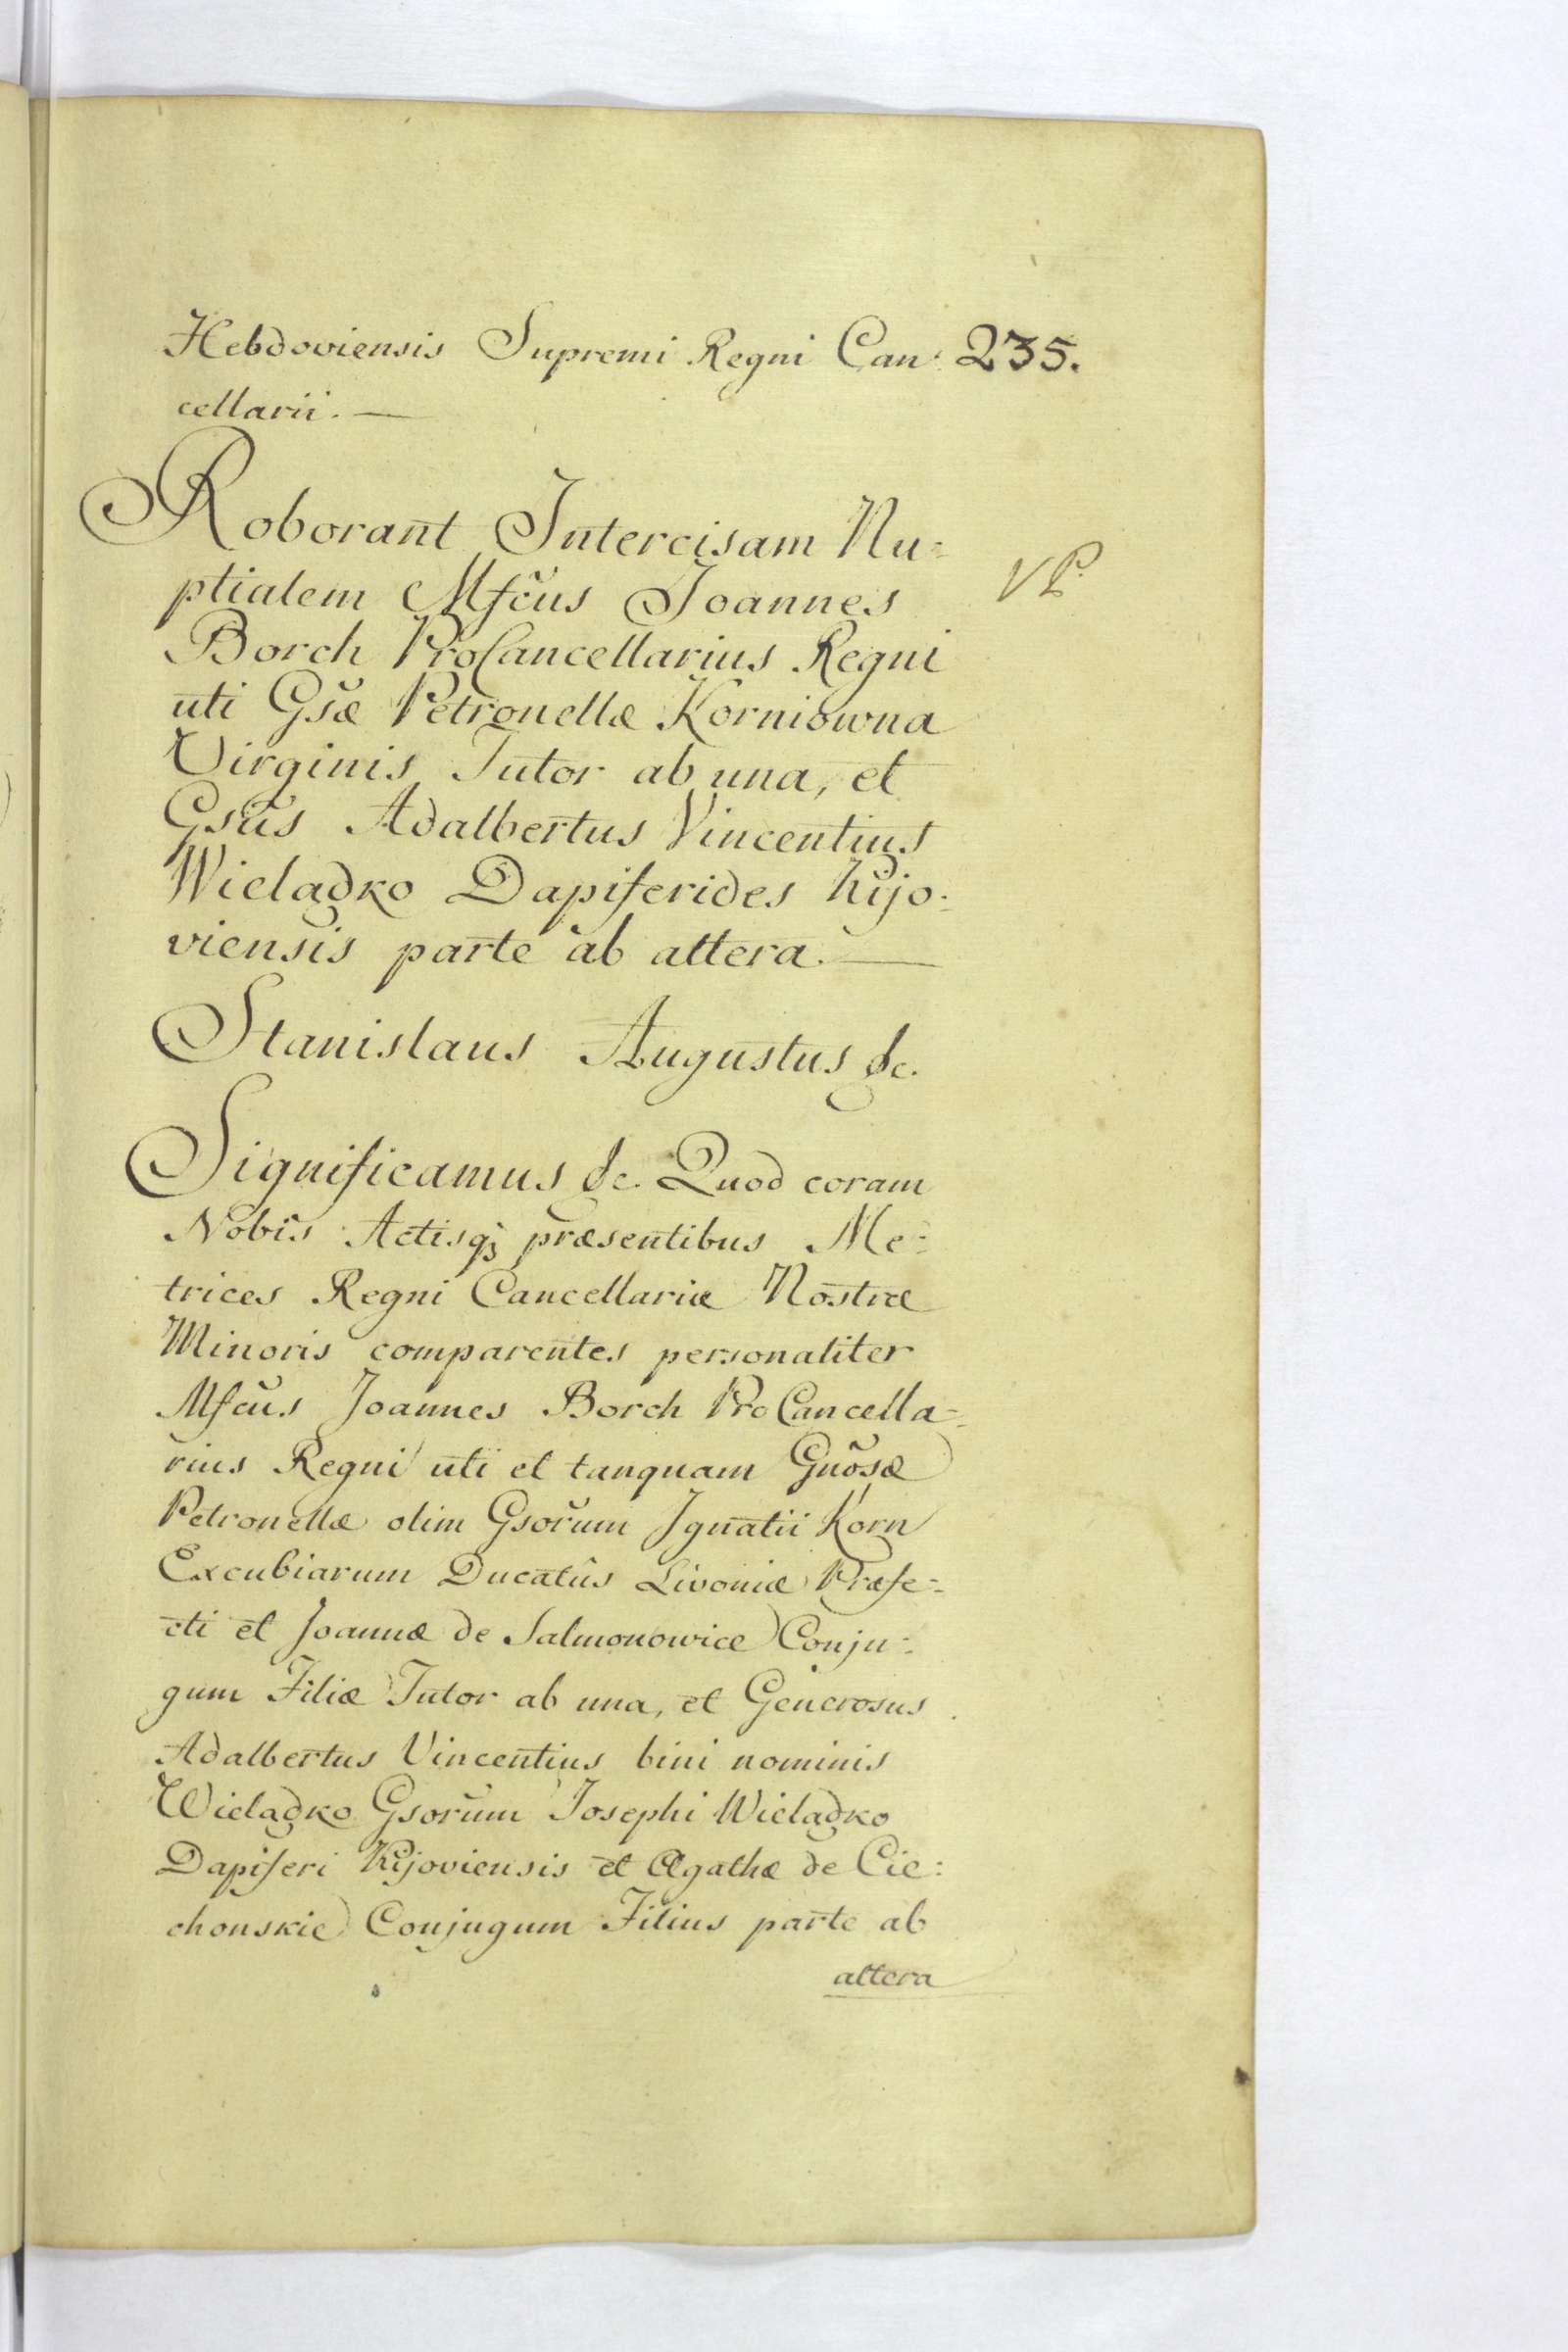 Hebdoviensis Supremi Regni Can: 235.
cellarii. —
Roborant Intercisam Nu=
ptialem Mfcus Joannes
Borch ProCancellarius Regni
uti Gsæ Petronellæ Korniowna
Virginis Tutor ab una, et
Gsus Adalbertus Vincentius
Wieladko Dapiferides Kijo=
viensis parte ab altera. —
Stanislaus Augustus &c.
Significamus &c. Quod coram
Nobis Actisq; præsentibus Me=
trices Regni Cancellariæ Nostræ
Minoris comparentes personaliter
Mfcus Joannes Borch ProCancella=
rius Regni uti et tanquam Gnosæ
Petronellæ olim Gsorum Ignatii Korn
Excubiarum Ducatûs Livoniæ Præfe=
cti et Joannæ de Salmonowice Conju=
gum Filiæ Tutor ab una, et Generosus
Adalbertus Vincentius bini nominis
Wieladko Gsorum Josephi Wieladko
Dapiferi Kijoviensis et Agathæ de Cie=
chonskie Conjugum Filius parte ab
altera